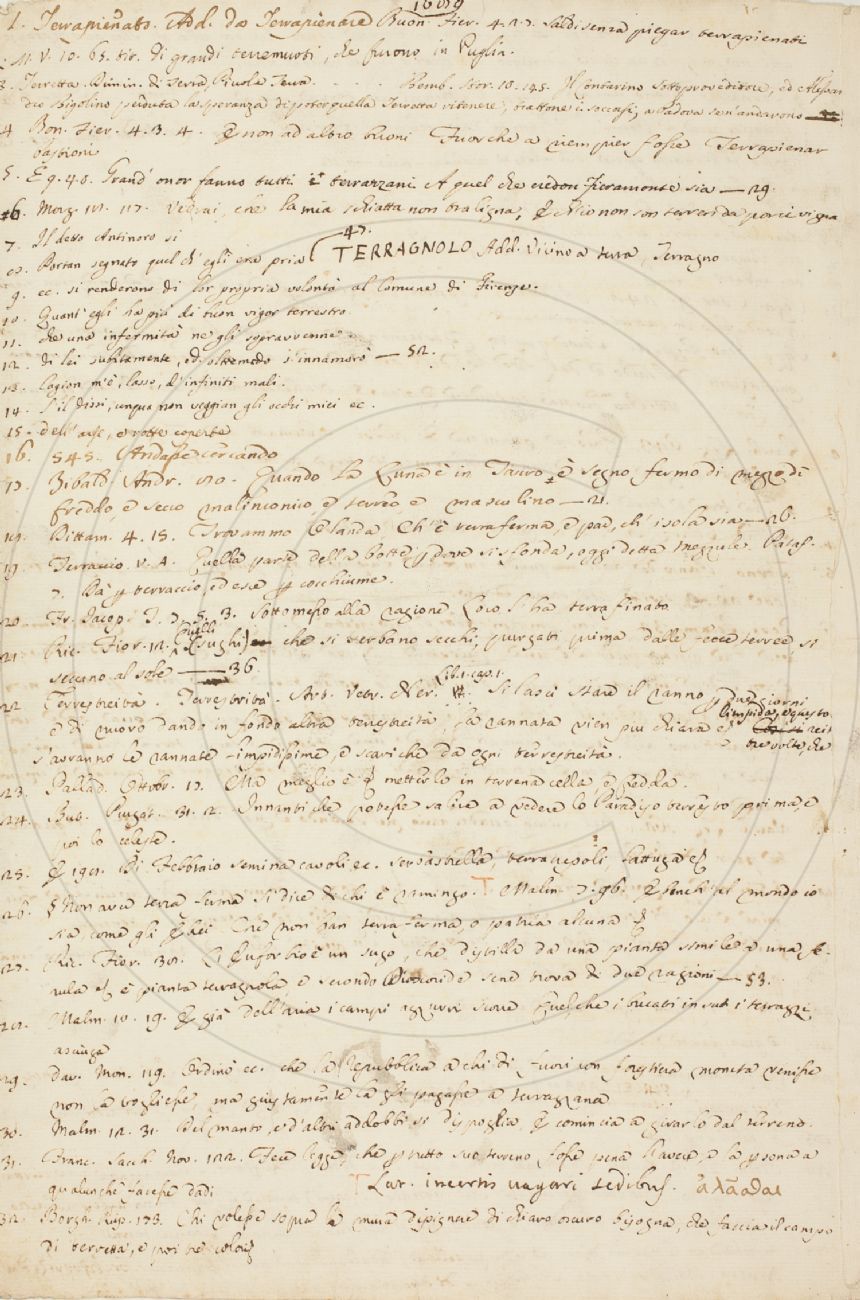 1609
1. Terrapienato. Add. da Terrapienare Buon. Fier. 4. 2. 7. Saldi senza piegar terrapienati
M. V. 10. 65. tit. di grandi terremuoti, che furono in Puglia.
3. Terretta. Dimin. di Terra, Piccola Terra . . . . Bemb. Stor. 10. 145. Il Contarino sottoprovveditore, ed Alessan
dro Bigolino perduta la speranza di poter quella Terretta ritenere, a Padova se n'andarono
4 Bon. Fier. 4. 3. 4. E non ad altro buoni Fuorche a riempier fosse Terrapienar
bastioni
5. E 9. 48. Grand' onor fanno tutti i terrazzani A quel che credon Fieramonte sia — 29.
6. Morg. 117. Vedrai, che la mia schiatta non traligna, E ch'io non son terren da porci vigna
7. Il detto Antinoro si
8. Portan segnato quel ch' egli era pria 47. TERRAGNOLO Add. Vicino a terra, Terragno
9. ec. si renderono di lor propria volontà al Comune di Firenze.
10. Quant' egli ha più di buon vigor terrestro
11. che una infermità ne gli sopravvenne
12. di lei subitamente, ed oltremodo s'innamorò — 52.
13. Cagion m'è, lasso, d'infiniti mali.
14. S' il dissi, unqua non veggian gli occhi miei ec.
15. dell' arse, e rotte coperte
16. 545. Andasse cercando
17. Zibald. Andr. 110. Quando la Luna è in Tauro, è segno fermo di mezzodì
freddo, e secco malinconio, e terreo e mascolino — 21.
18. Dittam. 4. 15. Trovammo Islanda Ch' è terra ferma, e par, ch' isola sia — 26.
19 Terraccio. V. A. Quella parte della botte, dove si sfonda, oggi detta mezzule. Pataf.
7. Dà terraccio, ed esce cocchiume.
20 Fr. Jacop. T. 7. 5. 3. Sottomesso alla ragione Loco l'ha terrafinato
21. Ric. Fior. 12. Quelli (sughi) che si serbano secchi, purgati prima dalle fecce terree, si
seccano al sole — 36.
22 Terrestreità. Terrestrità. Art. Vetr. Ner. Lib. 1. cap. 1. Si lasci stare il ranno due giorni
e di nuovo dando in fondo altra terrestreità, la rannata vien più chiara e limpida, e questo
tre volte, che
s'avranno le rannate limpidissime, e scariche da ogni terrestreità.
23. Pallad. Ottobr. 17. Ma meglio è metterlo in terrena cella, e fredda.
24. But. Purgat. 31. 2. Innanti che potesse salire a vedere lo Paradiso terrestro prima, e
poi lo celeste.
25. E 190. Di Febbraio semina cavoli ec. serbastrella, terracrepoli, lattuga
26. Non aver terra ferma si dice di chi è ramingo. Malm. 7. 96. E benchè pel mondo io
sia come gli Ebrei Che non han terra ferma, o patria alcuna
27. Ric. Fior. 30. L'Euforbio è un sugo, che distilla da una pianta simile a una fe-
rula è pianta terragnola, e secondo Dioscoride sene trova di due ragioni — 53.
28. Malm. 10. 19. E già dell'aria i campi azzurri scorre Quel, che i bucati in su i terrazzi
asciuga
29. Dav. Mon. 119. Ordinò ec. che la Repubblica a chi di fuori con forestiera moneta venisse
non la togliesse, ma giustamente la gli pagasse a terrazzana
30. Malm. 12. 31. Del manto, e d'altri addobbi si dispoglia, E comincia a girarlo dal terreno.
31. Franc. Sacch. Nov. 122. Fece legge, che tutto suo terreno fosse pena l'avere, e la persona a
qualunche facesse dadi Lat. incertis vagari sedibus. ἀλᾶσθαι
32 Borgh. Rip. 173. Chi volesse sopra le mura dipignere di chiaro oscuro bisogna, che faccia il campo
di terretta, e poi tre colori